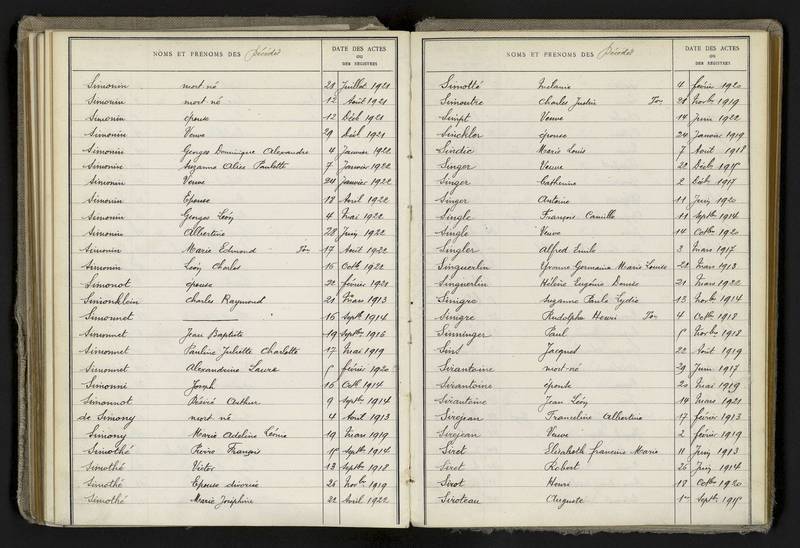 NOMS ET PRENOMS DES Décédés
DATE DES ACTES
OU
DES REGISTRES
Simonin mort né 28 Juillet 1921
Simonin mort né 12 Août 1921
Simonin épouse 12 Déc 1921
Simonin Veuve 29 Déc 1921
Simonin Georges Dominique Alexandre 4 Janvier 1922
Simonin Suzanne Alice Paulette 7 Janvier 1922
Simonin Veuve 24 Janvier 1922
Simonin Epouse 18 Avril 1922
Simonin Georges Léon 4 Mai 1922
Simonin Albertine 28 Juin 1922
Simonin Marie Edmond 17 Août 1922
Simonin Léon Charles 16 Octb 1922
Simonot épouse 22 février 1921
Simonklein Charles Raymond 21 Mars 1913
Simonnet 16 Septb 1914
Simonnet Jean Baptiste 19 Septbre 1916
Simonnet Pauline Juliette Charlotte 17 Mai 1919
Simonnet Alexandrine Laure 5 février 1920
Simonni Joseph 16 Octb 1914
Simonnot Désiré Arthur 9 Septbr 1914
de Simony mort né 4 Août 1913
Simony Marie Adeline Léonie 19 Mars 1919
Simothé Pierre François 15 Septbr 1914
Simothé Victor 13 Septbr 1918
Simothé Epouse divorcée 26 Novbre 1919
Simothé Marie Joséphine 22 Avril 1922
NOMS ET PRENOMS DES Décédés
DATE DES ACTES
OU
DES REGISTRES
Simotté Mélanie 4 février 1920
Simoutre Charles Justin 21 Novbre 1919
Simpt Veuve 14 Juin 1922
Sinckler épouse 24 Janvier 1919
Sindic Marie Louis 7 Août 1918
Singer Veuve 21 Déc 1915
Singer Catherine 2 Déc 1917
Singer Antoine 11 Juin 1920
Single François Camille 11 Septbr 1914
Single Veuve 14 Octbre 1920
Singler Alfred Emile 3 Mars 1917
Singuerlin Yvonne Germaine Marie Louise 28 Mars 1913
Singuerlin Hélène Eugénie Denise 21 Mars 1922
Sinigre Suzanne Paule Lydie 13 Novbre 1914
Sinigre Rudolphe Henri 4 Octbre 1918
Sinninger Paul 5 Novbre 1918
Sins Jacques 22 Août 1919
Sirantoine mort-né 29 Juin 1917
Sirantoine épouse 20 Mai 1919
Sirantoine Jean Léon 14 Mars 1921
Sirejean Franceline Albertine 17 février 1913
Sirejean Veuve 2 février 1919
Siret Elisabeth francine Marie 11 Juin 1913
Siret Robert 26 Juin 1914
Sirot Henri 18 Octbre 1920
Siroteau Auguste 1er Septbr 1915